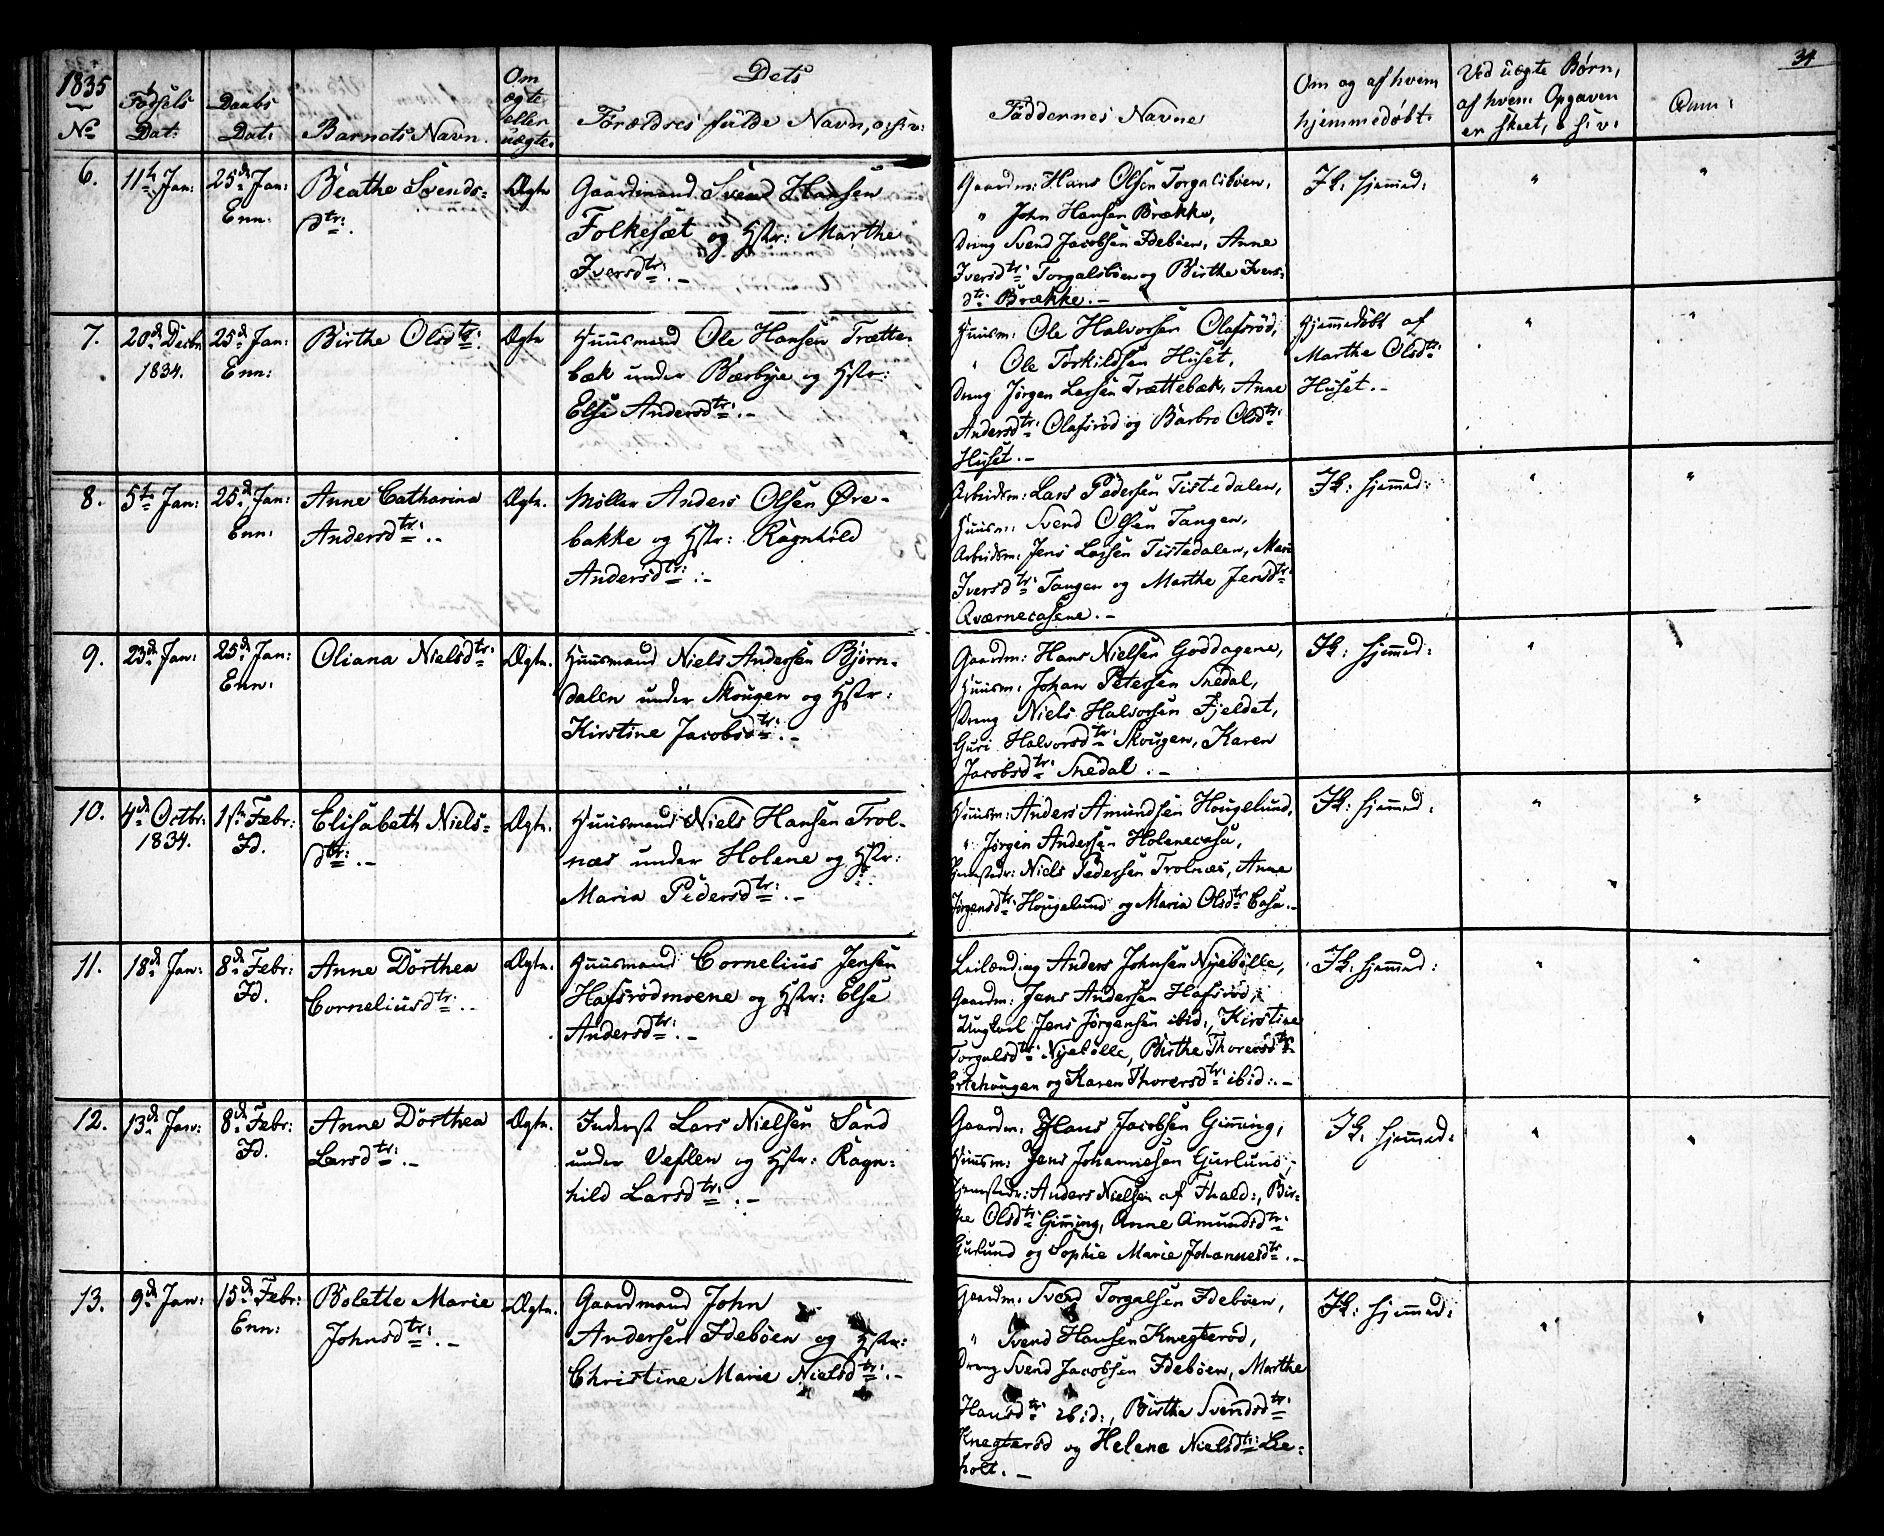 34
1835
No
Fødsels Dat:
Daabs Dat:
Barnets Navn.
Om ægte eller uægte.
Dets
Forældres fulde Navn, o: s: v:
Faddernes Navne
Om og af hvem hjemmedøbt.
Ved uægte Børn, af hvem Opgaven er skeet, o s: v:
Anm:
6.
11te Jan:
25de Jan: Enn:
Beathe Svends-
dtr:
Ægte
Gaardmand Svend Hansen
Folkesæt og Hstr: Marthe
Iversdtr: . -
Gaardm: Hans Olsen Torgalsbøen,
" John Hansen Brække,
Dreng Svend Jacobsen Idebøen, Anne
Iversdtr: Torgalsbøen og Birthe Ivers-
dtr: Brække. -
Ik: hjemmed:
"
"
7.
20de Decbr 1834.
25de Jan: Enn:
Birthe Olsdtr:
Ægte
Huusmand Ole Hansen Trætte-
bæk under Bærbye og Hstr:
Else Andersdtr: . -
Huusm: Ole Halvorsen Olafsrød,
" Ole Torkildsen Huset,
Dreng Jørgen Larsen Trættebæk, Anne
Andersdtr: Olafsrød og Barbro Olsdtr:
Huset. -
Hjemmedøbt af
Marthe Olsdtr:
Huset. -
"
"
8.
5te Jan:
25de Jan: Enn:
Anne Catharina
Andersdtr: . -
Ægte.
Møller Anders Olsen Øre-
bakke og Hstr: Ragnhild
Andersdtr: . -
Arbeidsm: Lars Pedersen Tistedalen,
Huusm: Svend Olsen Tangen,
Arbeidsm: Jens Larsen Tistedalen, Mari
Iversdtr: Tangen og Marthe Jensdtr:
Qværnecasene. -
Ik: hjemmed:
"
"
9.
23de Jan:
25de Jan: Enn:
Oliana Nielsdtr:
Ægte.
Huusmand Niels Andersen Bjørn-
dalen under Skougen og Hstr:
Kirstine Jacobsdtr: . -
Gaardm: Hans Nielsen Goddagene,
Huusm: Johan Petersen Snedal,
Dreng Niels Halvorsen Fjeldet,
Guri Halvorsdtr: Skougen, Karen
Jacobsdtr: Snedal . -
Ik: hjemmed:
"
10.
4de Octbr: 1834.
1ste Febr: Fd.
Elisabeth Niels-
dtr: . -
Ægte.
Huusmand Niels Hansen Trol-
næs under Holene og Hstr:
Maria Pedersdtr: . -
Huusm: Anders Amundsen Hougelund,
" Jørgen Andersen Holenecasa,
Niels Pedersen Trolnæs, Anne
Jørgensdtr: Hougelund og Maria Olsdtr Casa. -
Ik: hjemmed:
"
"
11.
18de Jan:
8de Febr: Fd.
Anne Dorthea
Corneliusdtr: . -
Ægte.
Huusmand Cornelius Jensen
Hafsrødmoene og Hstr: Else
Andersdtr: . -
Leilænding Anders Johnsen Nyebølle,
Gaardm: Jens Andersen Hafsrød,
Ungkarl Jens Jørgensen ibid:, Kirstine
Torgalsdtr: Nyebølle, Birthe Thoresdtr:
Ertehougen og Karen Thoresdtr: ibid: . -
Ik: hjemmed:
"
"
12.
13de Jan:
8de Febr: Fd.
Anne Dorthea
Larsdtr: . -
Ægte.
Inderst Lars Nielsen Sand
under Veslen og Hstr: Ragn-
hild Larsdtr: . -
Gaardm: Hans Jacobsen Gimming,
Huusm: Jens Johannesen Gurlund,
Anders Nielsen af Fhald:, Bir-
the Olsdtr: Gimming, Anne Amundsdtr:
Gurlund og Sophie Marie Johannesdtr: . -
Ik: hjemmed:
"
"
13.
9de Jan:
15de Febr: Enn:
Bolette Marie
Johnsdtr: . -
Ægte.
Gaardmand John
Andersen Idebøen og Hstr:
Christine Marie Nielsdtr: . -
Gaardm: Svend Torgalsen Idebøen,
" Svend Hansen Knegterød,
Dreng Svend Jacobsen Idebøen, Marthe
Hansdtr: ibid:, Birthe Svendsdtr:
Knegterød og Helene Nielsdtr: Le-
holt. -
Ik: hjemmed:
"
"